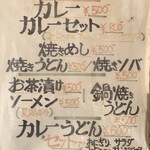 カレー ¥500
カレーセット
¥800
焼きめし ¥500
焼きうどん ¥500 焼きソバ
お茶漬け ¥500
ソーメン ¥500
鍋焼き
うどん
カレーうどん
セット
おにぎり サラダ